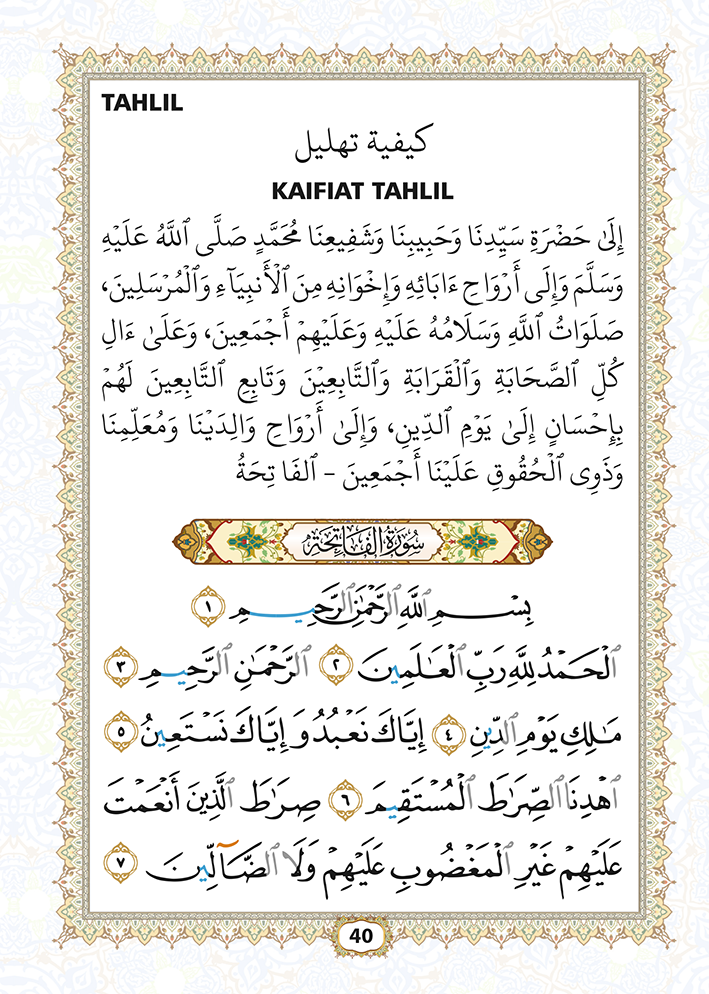 TAHLIL
كيفية تهليل
KAIFIAT TAHLIL
إِلَىٰ حَضْرَةِ سَيِّدِنَا وَحَبِيبِنَا وَشَفِيعِنَا مُحَمَّدٍ صَلَّى ٱللَّهُ عَلَيْهِ
وَسَلَّمَ وَإِلَى أَرْوَاحِ ءَابَائِهِ وَإِخْوَانِهِ مِنَ ٱلْأَنبِيَآءِ وَٱلْمُرْسَلِينَ،
صَلَوَاتُ ٱللَّهِ وَسَلَامُهُ عَلَيْهِ وَعَلَيْهِمْ أَجْمَعِينَ، وَعَلَىٰ ءَالِ
كُلِّ ٱلصَّحَابَةِ وَٱلْقَرَابَةِ وَٱلتَّابِعِيْنَ وَتَابِعِ ٱلتَّابِعِينَ لَهُمْ
بِإِحْسَانٍ إِلَىٰ يَوْمِ ٱلدِّينِ، وَإِلَىٰ أَرْوَاحِ وَالِدَيْنَا وَمُعَلِّمِنَا
وَذَوِى ٱلْحُقُوقِ عَلَيْنَا أَجْمَعِينَ – ٱلفَا تِحَةُ
سُورَةُ الفَاتِحَة
بِسْمِ ٱللَّهِ ٱلرَّحْمَٰنِ ٱلرَّحِيمِ ١
ٱلْحَمْدُ لِلَّهِ رَبِّ ٱلْعَٰلَمِينَ ٢ ٱلرَّحْمَٰنِ ٱلرَّحِيمِ ٣
مَٰلِكِ يَوْمِ ٱلدِّينِ ٤ إِيَّاكَ نَعْبُدُ وَإِيَّاكَ نَسْتَعِينُ ٥
ٱهْدِنَا ٱلصِّرَٰطَ ٱلْمُسْتَقِيمَ ٦ صِرَٰطَ ٱلَّذِينَ أَنْعَمْتَ
عَلَيْهِمْ غَيْرِ ٱلْمَغْضُوبِ عَلَيْهِمْ وَلَا ٱلضَّآلِّينَ ٧
40